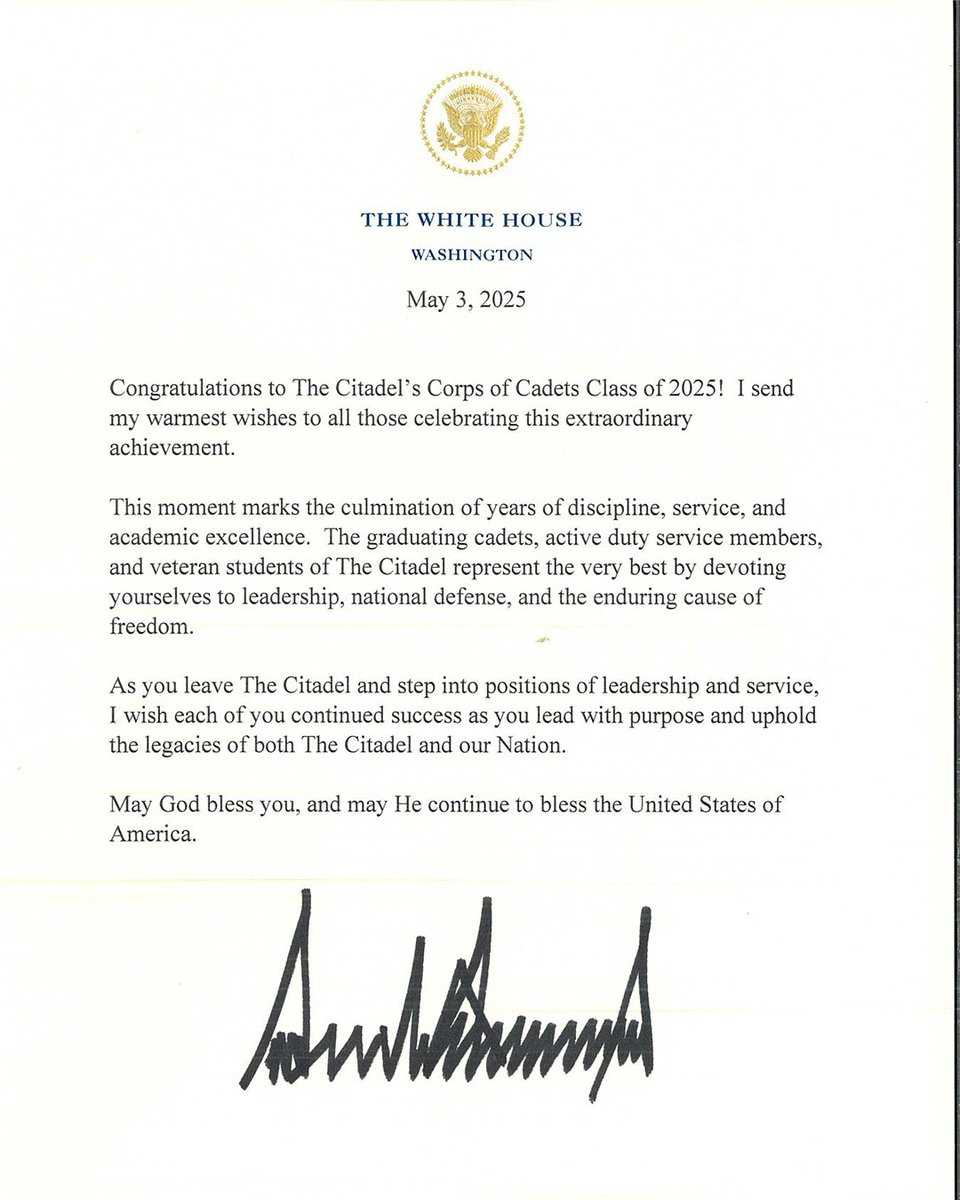 THE WHITE HOUSE
WASHINGTON
May 3, 2025
Congratulations to The Citadel’s Corps of Cadets Class of 2025!  I send
my warmest wishes to all those celebrating this extraordinary
achievement.
This moment marks the culmination of years of discipline, service, and
academic excellence.  The graduating cadets, active duty service members,
and veteran students of The Citadel represent the very best by devoting
yourselves to leadership, national defense, and the enduring cause of
freedom.
As you leave The Citadel and step into positions of leadership and service,
I wish each of you continued success as you lead with purpose and uphold
the legacies of both The Citadel and our Nation.
May God bless you, and may He continue to bless the United States of
America.